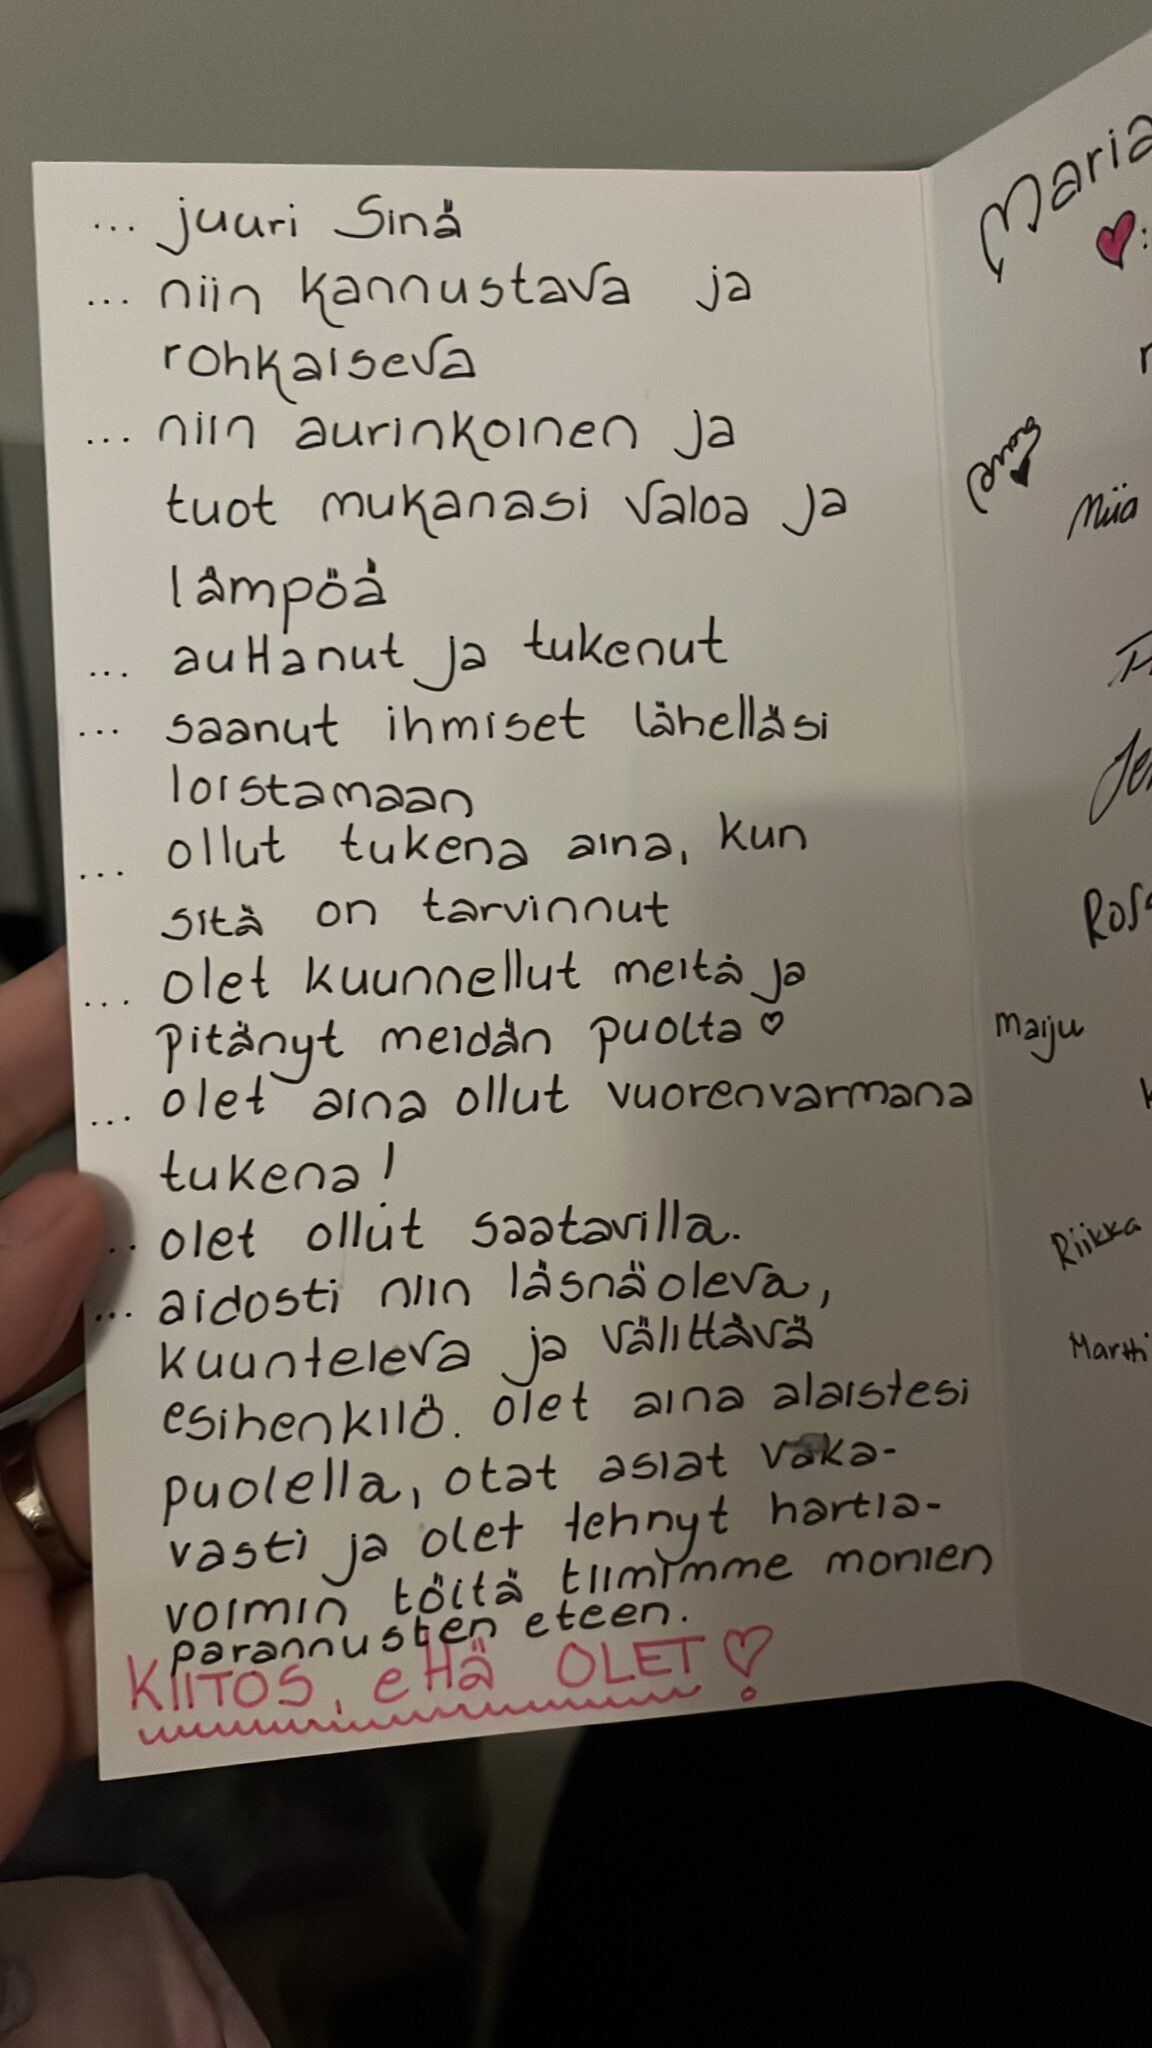 ... juuri Sinä
... niin kannustava ja
rohkaiseva
... niin aurinkoinen ja
tuot mukanasi valoa ja
lämpöä
... auttanut ja tukenut
... saanut ihmiset lähelläsi
loistamaan
... ollut tukena aina, kun
sitä on tarvinnut
... olet kuunnellut meitä ja
pitänyt meidän puolta ♡
... olet aina ollut vuorenvarmana
tukena!
.. olet ollut saatavilla.
... aidosti niin läsnäoleva,
kuunteleva ja välittävä
esihenkilö. Olet aina alaistesi
puolella, otat asiat vaka-
vasti ja olet tehnyt hartia-
voimin töitä tiimimme monien
parannusten eteen.
KIITOS, että OLET ♡
Maria
Miia
Maiju
Riikka
Martti